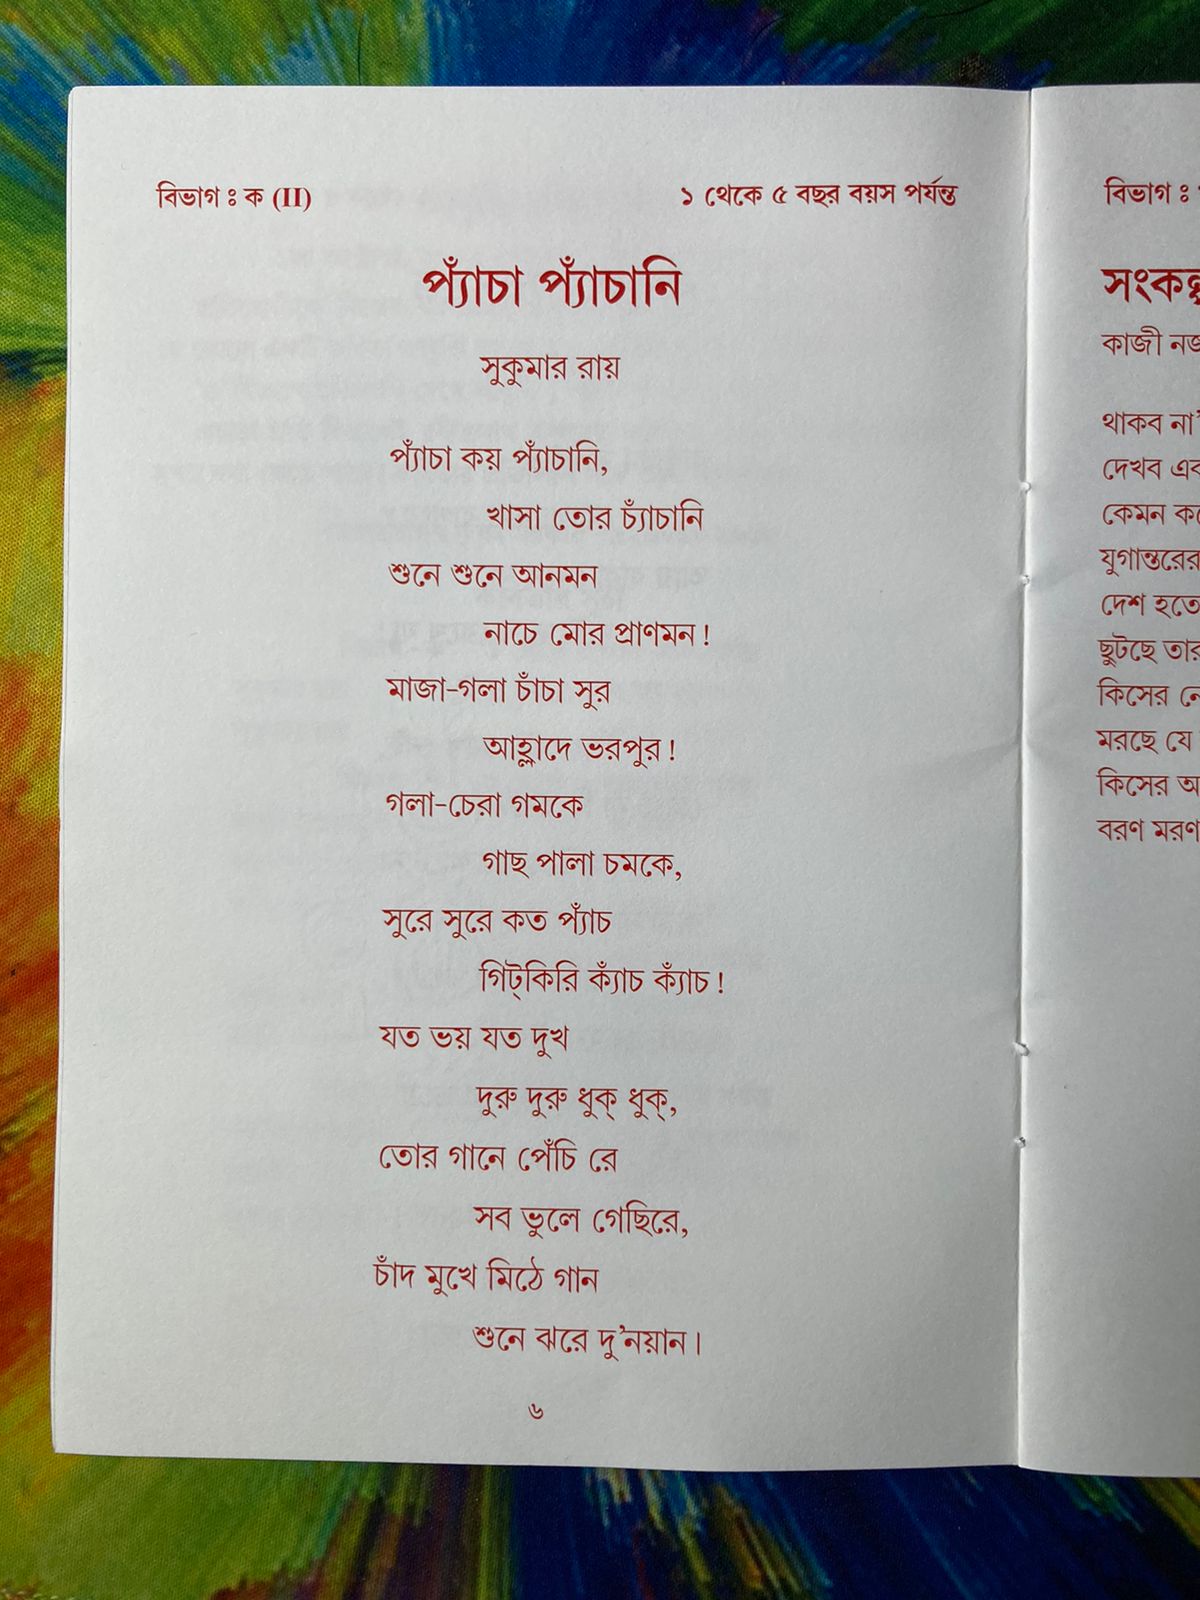 বিভাগ ঃ ক (II) ১ থেকে ৫ বছর বয়স পর্যন্ত
প্যাঁচা প্যাঁচানি
সুকুমার রায়
প্যাঁচা কয় প্যাঁচানি,
খাসা তোর চ্যাঁচানি
শুনে শুনে আনমন
নাচে মোর প্রাণমন !
মাজা-গলা চাঁচা সুর
আহ্লাদে ভরপুর !
গলা-চেরা গমকে
গাছ পালা চমকে,
সুরে সুরে কত প্যাঁচ
গিট্‌কিরি ক্যাঁচ ক্যাঁচ !
যত ভয় যত দুখ
দুরু দুরু ধুক্ ধুক্,
তোর গানে পেঁচি রে
সব ভুলে গেছিরে,
চাঁদ মুখে মিঠে গান
শুনে ঝরে দু'নয়ান।
৬
বিভাগ ঃ
কাজী
থাকব না'
দেখব
কেমন
যুগান্তরের
দেশ হতে
ছুটছে
কিসের
মরছে যে
কিসের
বরণ মরণ